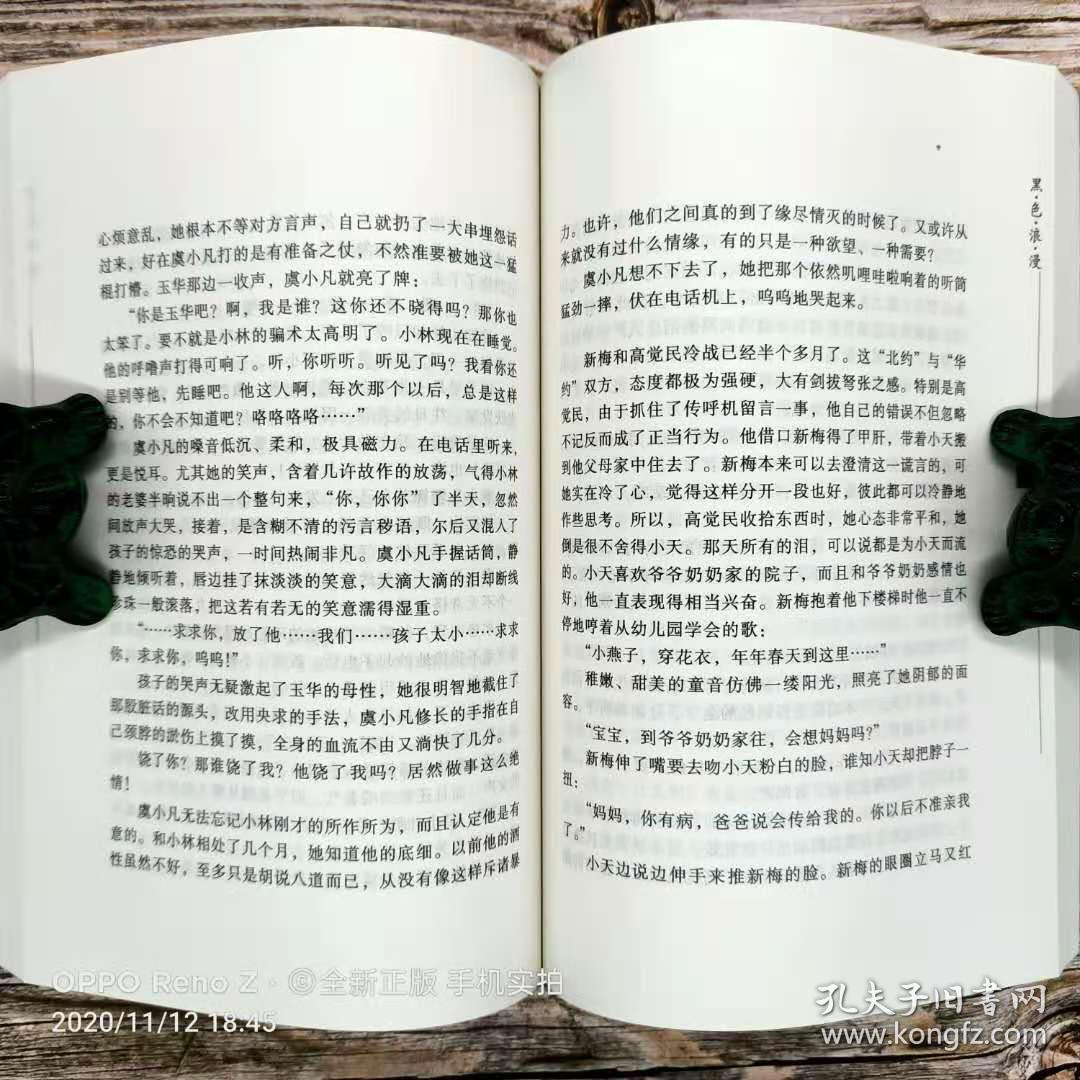 心烦意乱，她根本不等对方言声，自己就扔了一大串埋怨话
过来，好在虞小凡打的是有准备之仗，不然准要被她这一猛
棍打懵。玉华那边一收声，虞小凡就亮了牌：
“你是玉华吧？啊，我是谁？这你还不晓得吗？那你也
太笨了。要不就是小林的骗术太高明了。小林现在在睡觉。
他的呼噜声打得可响了。听，你听听。听见了吗？我看你还
是别等他，先睡吧。他这人啊，每次那个以后，总是这样
的，你不会不知道吧？咯咯咯咯……”
虞小凡的嗓音低沉、柔和，极具磁力。在电话里听来，
更是悦耳。尤其她的笑声，含着几许故作的放荡，气得小林
的老婆半晌说不出一个整句来，“你，你你”了半天，忽然
间放声大哭，接着，是含糊不清的污言秽语，尔后又混入了
孩子的惊恐的哭声，一时间热闹非凡。虞小凡手握话筒，静
静地倾听着，唇边挂了抹淡淡的笑意，大滴大滴的泪却断线
珍珠一般滚落，把这若有若无的笑意濡得湿重。
“……求求你，放了他……我们……孩子太小……求求
你，求求你，呜呜！”
孩子的哭声无疑激起了玉华的母性，她很明智地截住了
那股脏话的源头，改用央求的手法，虞小凡修长的手指在自
己颈脖的淤伤上摸了摸，全身的血流不由又淌快了几分。
饶了你？那谁饶了我？他饶了我吗？居然做事这么绝
情！
虞小凡无法忘记小林刚才的所作所为，而且认定他是有
意的。和小林相处了几个月，她知道他的底细。以前他的酒
性虽然不好，至多只是胡说八道而已，从没有像这样斥诸暴
力。也许，他们之间真的到了缘尽情灭的时候了。又或许从
来就没有过什么情缘，有的只是一种欲望、一种需要？
虞小凡想不下去了，她把那个依然叽哩哇啦响着的听筒
猛劲一摔，伏在电话机上，呜呜地哭起来。
新梅和高觉民冷战已经半个多月了。这“北约”与“华
约”双方，态度都极为强硬，大有剑拔弩张之感。特别是高
觉民，由于抓住了传呼机留言一事，他自己的错误不但忽略
不记反而成了正当行为。他借口新梅得了甲肝，带着小天搬
到他父母家中住去了。新梅本来可以去澄清这一谎言的，可
她实在冷了心，觉得这样分开一段也好，彼此都可以冷静地
作些思考。所以，高觉民收拾东西时，她心态非常平和，她
倒是很不舍得小天。那天所有的泪，可以说都是为小天而流
的。小天喜欢爷爷奶奶家的院子，而且和爷爷奶奶感情也
好，他一直表现得相当兴奋。新梅抱着他下楼梯时他一直不
停地哼着从幼儿园学会的歌：
“小燕子，穿花衣，年年春天到这里……”
稚嫩、甜美的童音仿佛一缕阳光，照亮了她阴郁的面
容。
“宝宝，到爷爷奶奶家往，会想妈妈吗？”
新梅伸了嘴要去吻小天粉白的脸，谁知小天却把脖子一
扭：
“妈妈，你有病，爸爸说会传给我的。你以后不准亲我
了。”
小天边说边伸手来推新梅的脸。新梅的眼圈立马又红
黑·色·浪·漫
OPPO Reno Z · ©全新正版 手机实拍
2020/11/12 18:45
孔夫子旧书网
www.kongfz.com